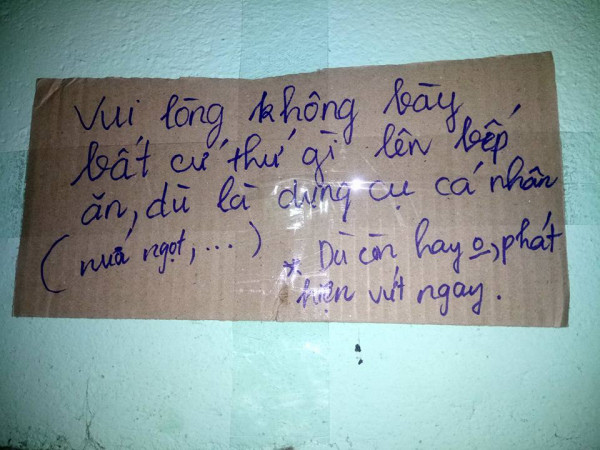 Vui lòng không bày
bất cứ thứ gì lên bếp
ăn, dù là dụng cụ cá nhân
(nước ngọt, ...)
* Dù còn hay o, phát
hiện vứt ngay.